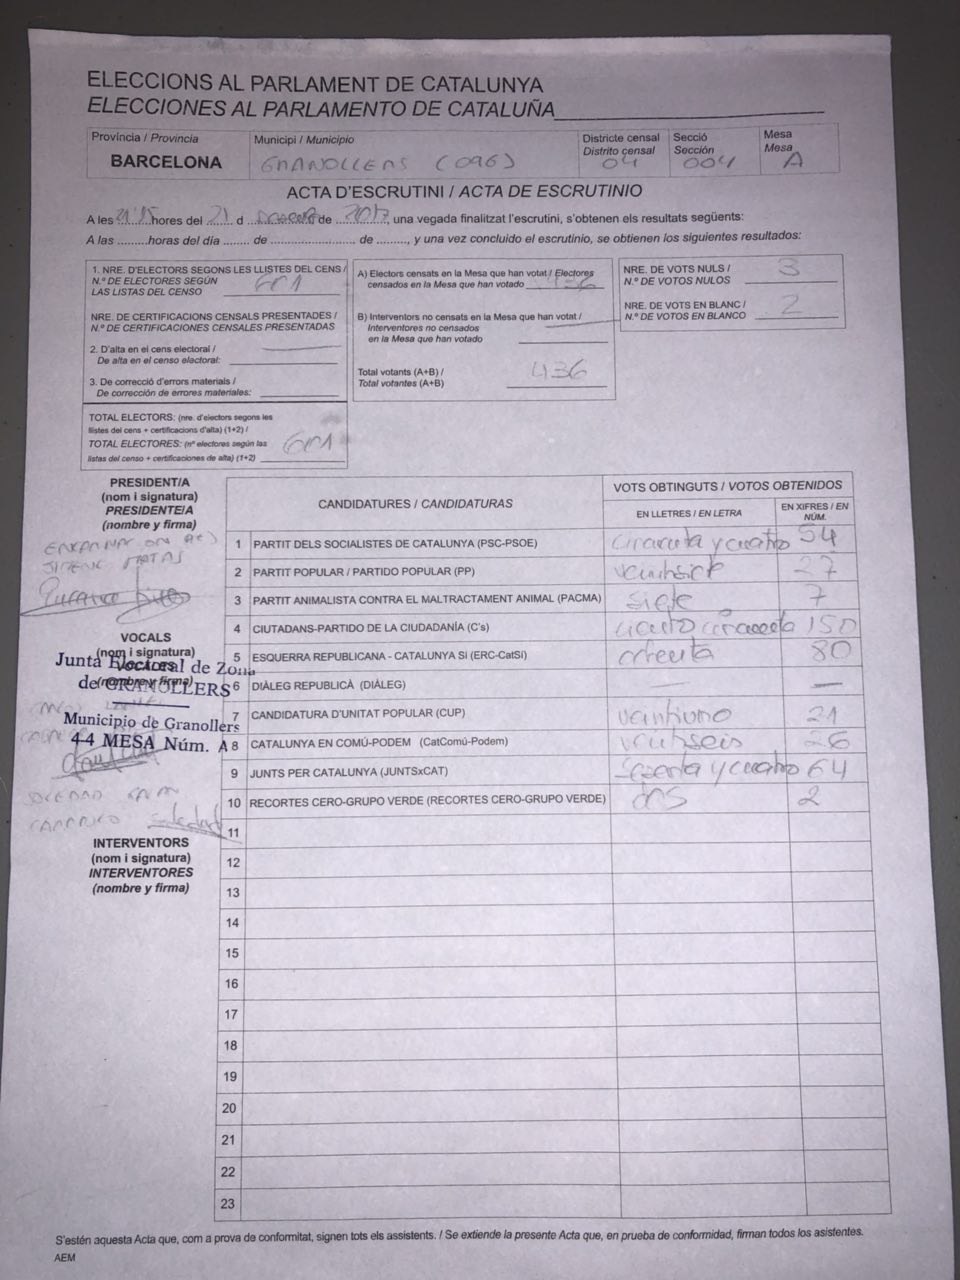 ELECCIONS AL PARLAMENT DE CATALUNYA
ELECCIONES AL PARLAMENTO DE CATALUÑA
Província / Provincia
BARCELONA
Municipi / Municipio
GRANOLLERS (096)
Districte censal
Distrito censal
04
Secció
Sección
004
Mesa
Mesa
A
ACTA D'ESCRUTINI / ACTA DE ESCRUTINIO
A les 21'15 hores del 21 d de 2017, una vegada finalitzat l'escrutini, s'obtenen els resultats següents:
A las .........horas del día ....... de ........................ de ........, y una vez concluido el escrutinio, se obtienen los siguientes resultados:
1. NRE. D'ELECTORS SEGONS LES LLISTES DEL CENS /
N.º DE ELECTORES SEGÚN
LAS LISTAS DEL CENSO
NRE. DE CERTIFICACIONS CENSALS PRESENTADES /
N.º DE CERTIFICACIONES CENSALES PRESENTADAS
2. D'alta en el cens electoral /
De alta en el censo electoral:
3. De correcció d'errors materials /
De corrección de errores materiales:
A) Electors censats en la Mesa que han votat / Electores
censados en la Mesa que han votado 436
B) Interventors no censats en la Mesa que han votat /
Interventores no censados
en la Mesa que han votado
Total votants (A+B) /
Total votantes (A+B) 436
NRE. DE VOTS NULS /
N.º DE VOTOS NULOS 3
NRE. DE VOTS EN BLANC /
N.º DE VOTOS EN BLANCO 2
TOTAL ELECTORS: (nre. d'electors segons les
llistes del cens + certificacions d'alta) (1+2) /
TOTAL ELECTORES: (nº electores según las
listas del censo + certificaciones de alta) (1+2)
PRESIDENT/A
(nom i signatura)
PRESIDENTE/A
(nombre y firma)
VOCALS
(nom i signatura)
VOCALES
(nombre y firma)
Junta Electoral de Zona
de GRANOLLERS
Municipio de Granollers
4-4 MESA Núm. A
SOLEDAD
INTERVENTORS
(nom i signatura)
INTERVENTORES
(nombre y firma)
CANDIDATURES / CANDIDATURAS
VOTS OBTINGUTS / VOTOS OBTENIDOS
EN LLETRES / EN LETRA
EN XIFRES / EN NÚM.
1 PARTIT DELS SOCIALISTES DE CATALUNYA (PSC-PSOE) cincuenta y cuatro 54
2 PARTIT POPULAR / PARTIDO POPULAR (PP) veintisiete 27
3 PARTIT ANIMALISTA CONTRA EL MALTRACTAMENT ANIMAL (PACMA) siete 7
4 CIUTADANS-PARTIDO DE LA CIUDADANÍA (C's) ciento cincuenta 150
5 ESQUERRA REPUBLICANA - CATALUNYA SÍ (ERC-CatSí) ochenta 80
6 DIÀLEG REPUBLICÀ (DIÀLEG) — —
7 CANDIDATURA D'UNITAT POPULAR (CUP) veintiuno 21
8 CATALUNYA EN COMÚ-PODEM (CatComú-Podem) veintiseis 26
9 JUNTS PER CATALUNYA (JUNTSxCAT) sesenta y cuatro 64
10 RECORTES CERO-GRUPO VERDE (RECORTES CERO-GRUPO VERDE) dos 2
11
12
13
14
15
16
17
18
19
20
21
22
23
S'estén aquesta Acta que, com a prova de conformitat, signen tots els assistents. / Se extiende la presente Acta que, en prueba de conformidad, firman todos los asistentes.
AEM